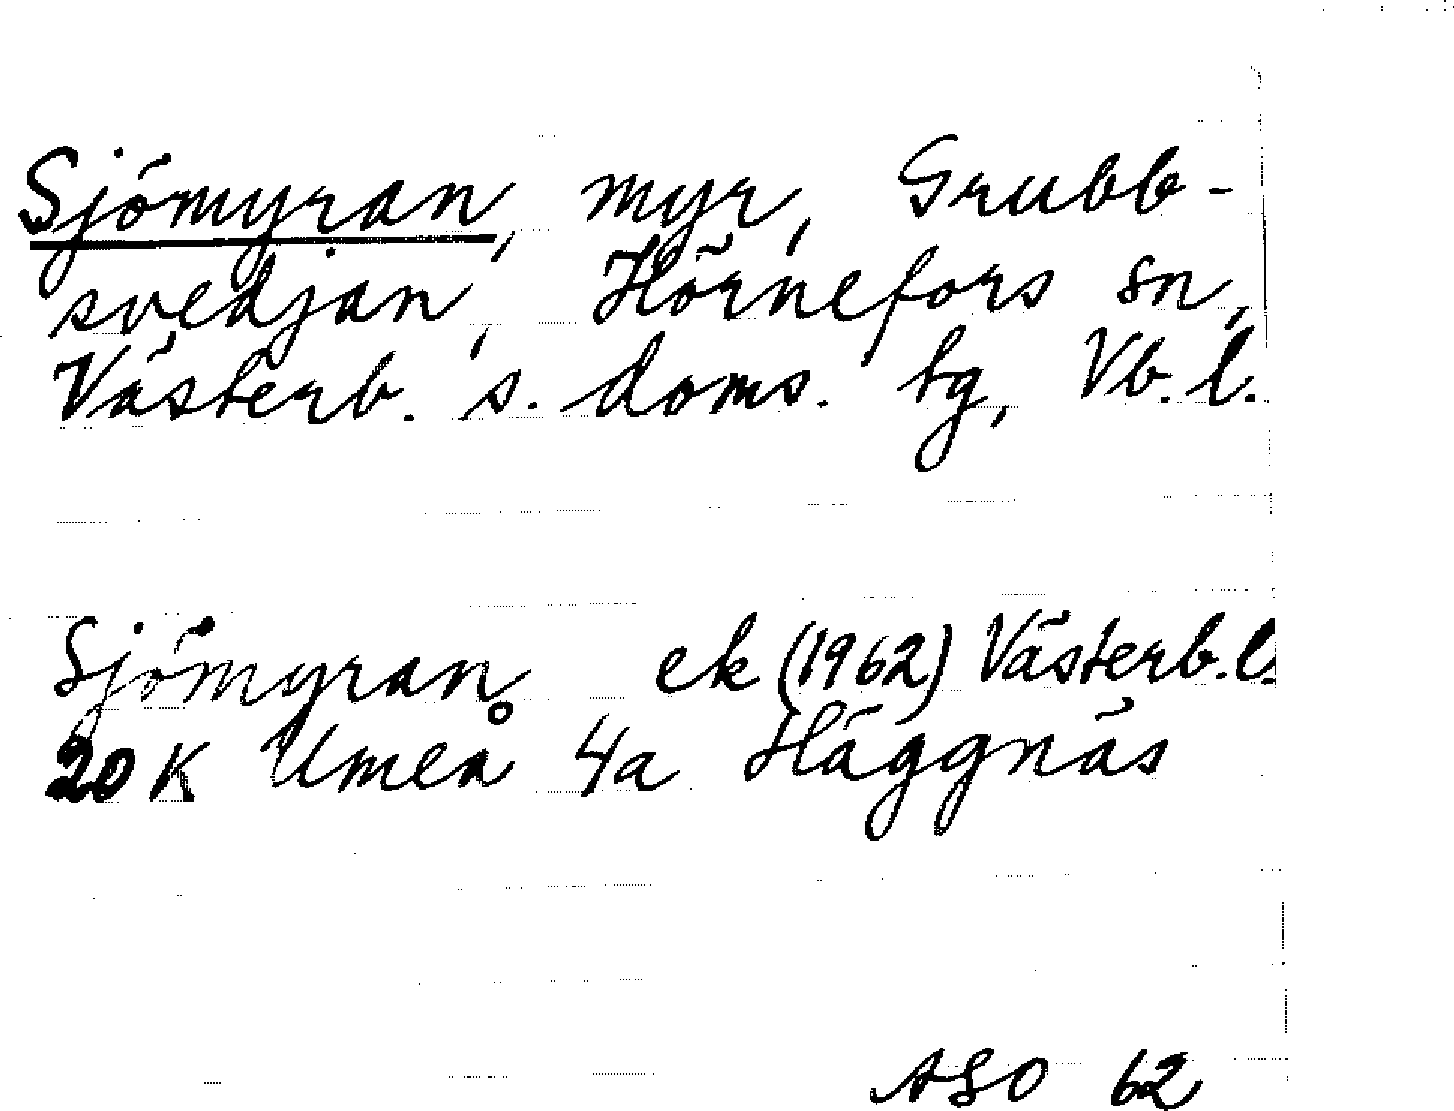 Sjömyran, myr, Grubb-
svedjan, Hörnefors sn,
Västerb. s. doms. tg, Vb. l.
Sjömyran ek (1962) Västerb. l.
20 K Umeå 4a Häggnäs
ASO 62